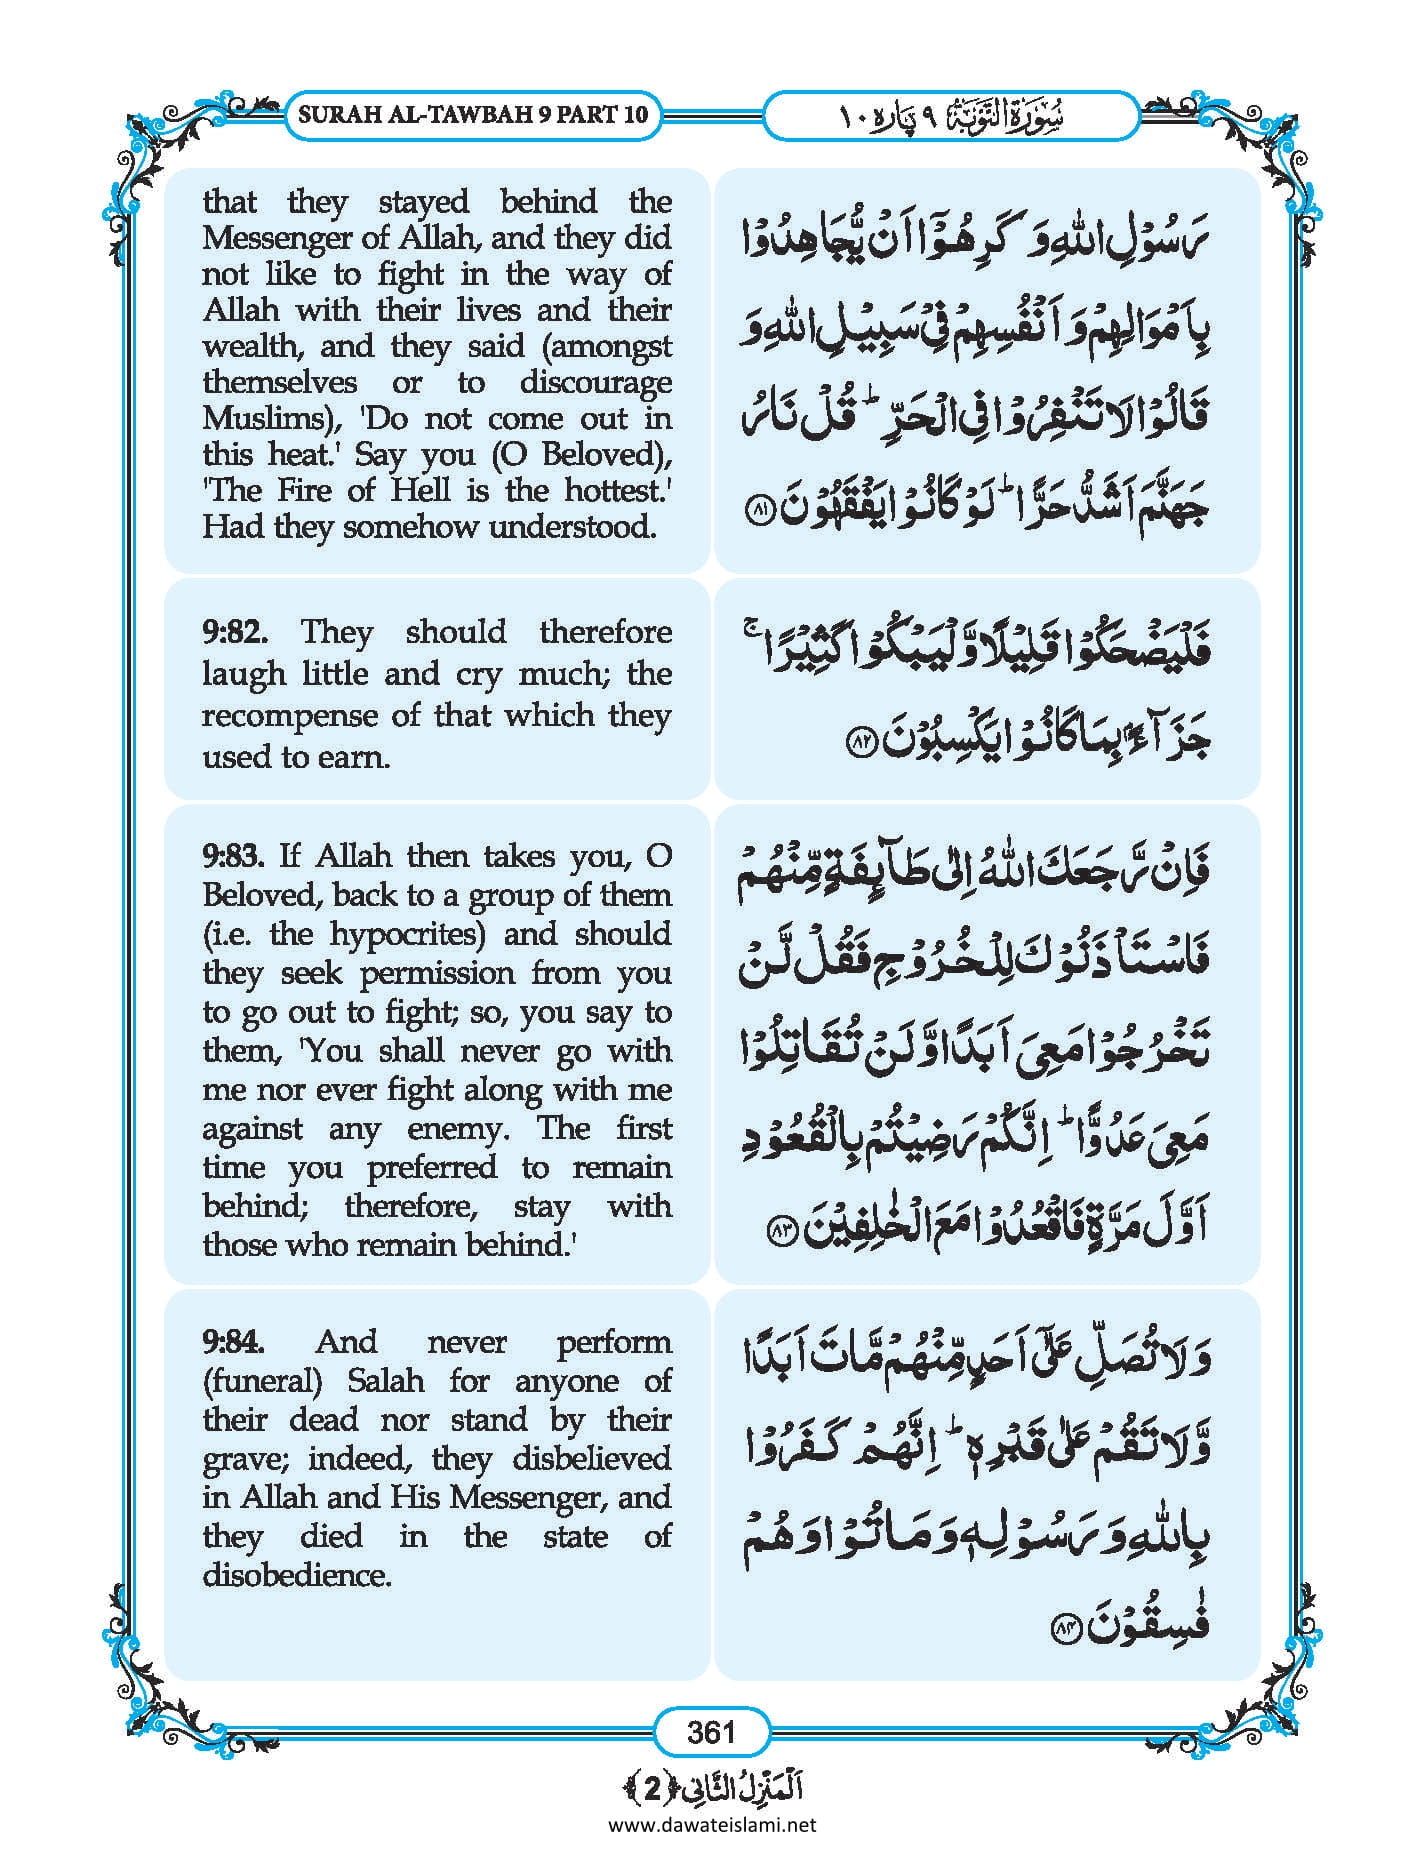 SURAH AL-TAWBAH 9 PART 10
سُوْرَةُ التَّوْبَةِ ٩ پارہ ١٠
that they stayed behind the
Messenger of Allah, and they did
not like to fight in the way of
Allah with their lives and their
wealth, and they said (amongst
themselves or to discourage
Muslims), 'Do not come out in
this heat.' Say you (O Beloved),
'The Fire of Hell is the hottest.'
Had they somehow understood.
رَسُوْلِ اللّٰهِ وَ كَرِهُوْۤا اَنْ یُّجَاهِدُوْا
بِاَمْوَالِهِمْ وَ اَنْفُسِهِمْ فِیْ سَبِیْلِ اللّٰهِ وَ
قَالُوْا لَا تَنْفِرُوْا فِی الْحَرِّ ؕ قُلْ نَارُ
جَهَنَّمَ اَشَدُّ حَرًّا ؕ لَوْ كَانُوْا یَفْقَهُوْنَ ﴿۸۱﴾
9:82. They should therefore
laugh little and cry much; the
recompense of that which they
used to earn.
فَلْیَضْحَكُوْا قَلِیْلًا وَّ لْیَبْكُوْا كَثِیْرًا ۚ
جَزَآءًۢ بِمَا كَانُوْا یَكْسِبُوْنَ ﴿۸۲﴾
9:83. If Allah then takes you, O
Beloved, back to a group of them
(i.e. the hypocrites) and should
they seek permission from you
to go out to fight; so, you say to
them, 'You shall never go with
me nor ever fight along with me
against any enemy. The first
time you preferred to remain
behind; therefore, stay with
those who remain behind.'
فَاِنْ رَّجَعَكَ اللّٰهُ اِلٰى طَآىِٕفَةٍ مِّنْهُمْ
فَاسْتَاْذَنُوْكَ لِلْخُرُوْجِ فَقُلْ لَّنْ
تَخْرُجُوْا مَعِیَ اَبَدًا وَّ لَنْ تُقَاتِلُوْا
مَعِیَ عَدُوًّا ؕ اِنَّكُمْ رَضِیْتُمْ بِالْقُعُوْدِ
اَوَّلَ مَرَّةٍ فَاقْعُدُوْا مَعَ الْخٰلِفِیْنَ ﴿۸۳﴾
9:84. And never perform
(funeral) Salah for anyone of
their dead nor stand by their
grave; indeed, they disbelieved
in Allah and His Messenger, and
they died in the state of
disobedience.
وَ لَا تُصَلِّ عَلٰۤى اَحَدٍ مِّنْهُمْ مَّاتَ اَبَدًا
وَّ لَا تَقُمْ عَلٰى قَبْرِهٖ ؕ اِنَّهُمْ كَفَرُوْا
بِاللّٰهِ وَ رَسُوْلِهٖ وَ مَاتُوْا وَ هُمْ
فٰسِقُوْنَ ﴿۸۴﴾
361
اَلْمَنْزِلُ الثَّانِی ﴿2﴾
www.dawateislami.net